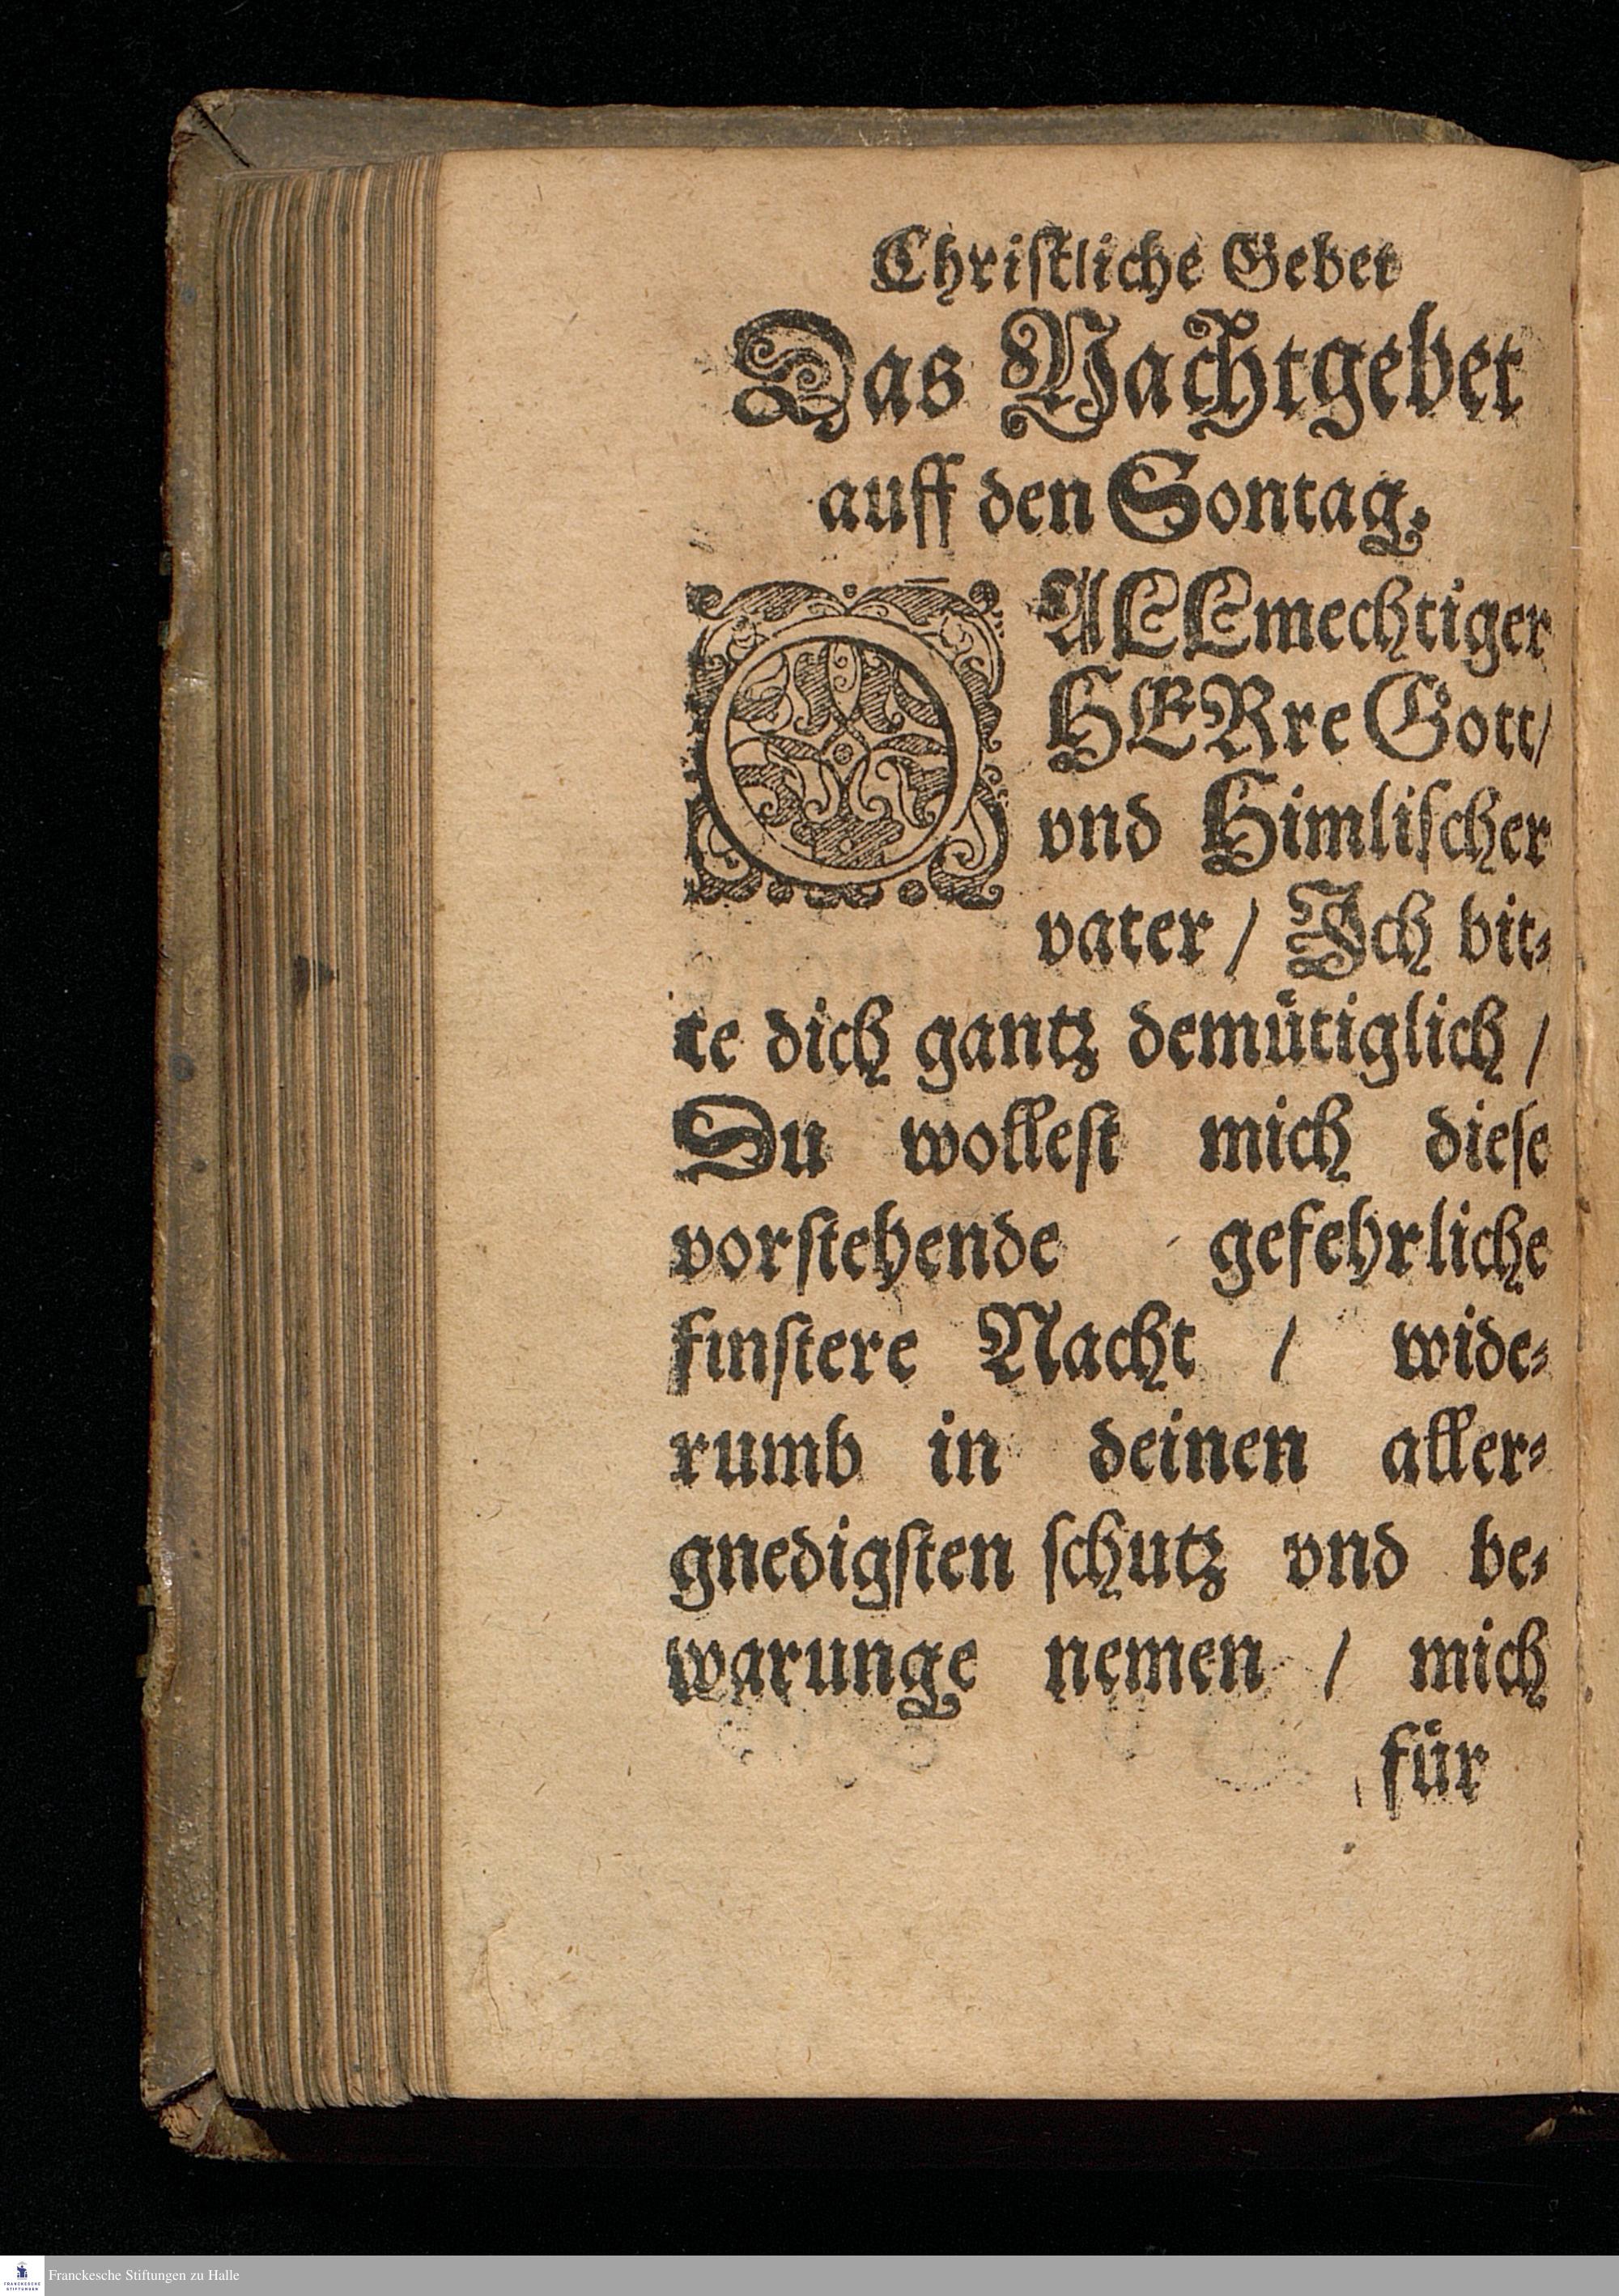 Christliche Gebet
Das Nachtgebet
auff den Sontag.
O ALLmechtiger
HERre Gott/
vnd Himlischer
vater / Ich bit⸗
te dich gantz demütiglich /
Du wollest mich diese
vorstehende gefehrliche
finstere Nacht / wide⸗
rumb in deinen aller⸗
gnedigsten schutz vnd be⸗
warunge nemen / mich
für
FRANCKESCHE STIFTUNGEN
Franckesche Stiftungen zu Halle